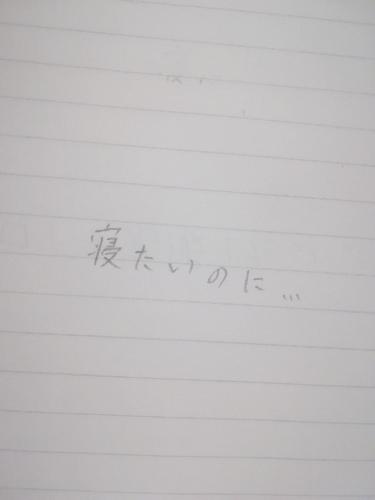 寝たいのに...